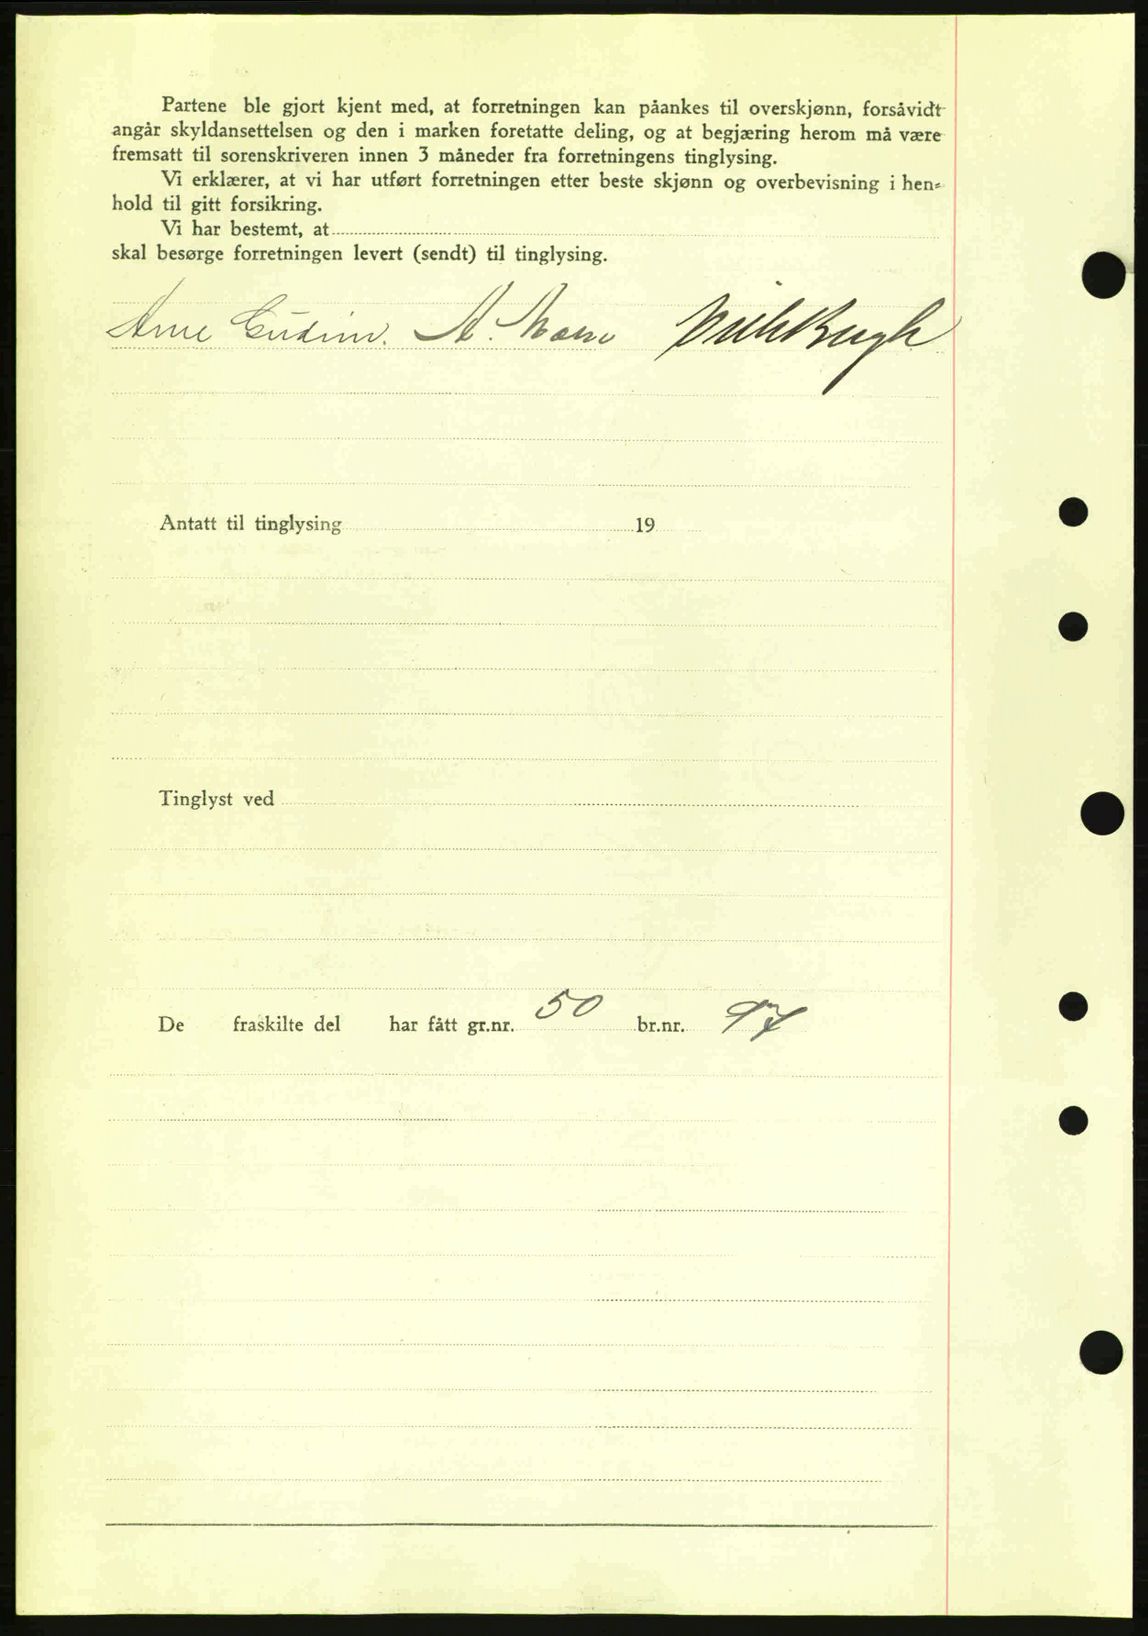 Partene ble gjort kjent med, at forretningen kan påankes til overskjønn, forsåvidt
angår skyldansettelsen og den i marken foretatte deling, og at begjæring herom må være
fremsatt til sorenskriveren innen 3 måneder fra forretningens tinglysing.
Vi erklærer, at vi har utført forretningen etter beste skjønn og overbevisning i hen=
hold til gitt forsikring.
Vi har bestemt, at
skal besørge forretningen levert (sendt) til tinglysing.
Arne Gudim. A.
Antatt til tinglysing 19
Tinglyst ved
De fraskilte del har fått gr.nr. 50 br.nr. 97